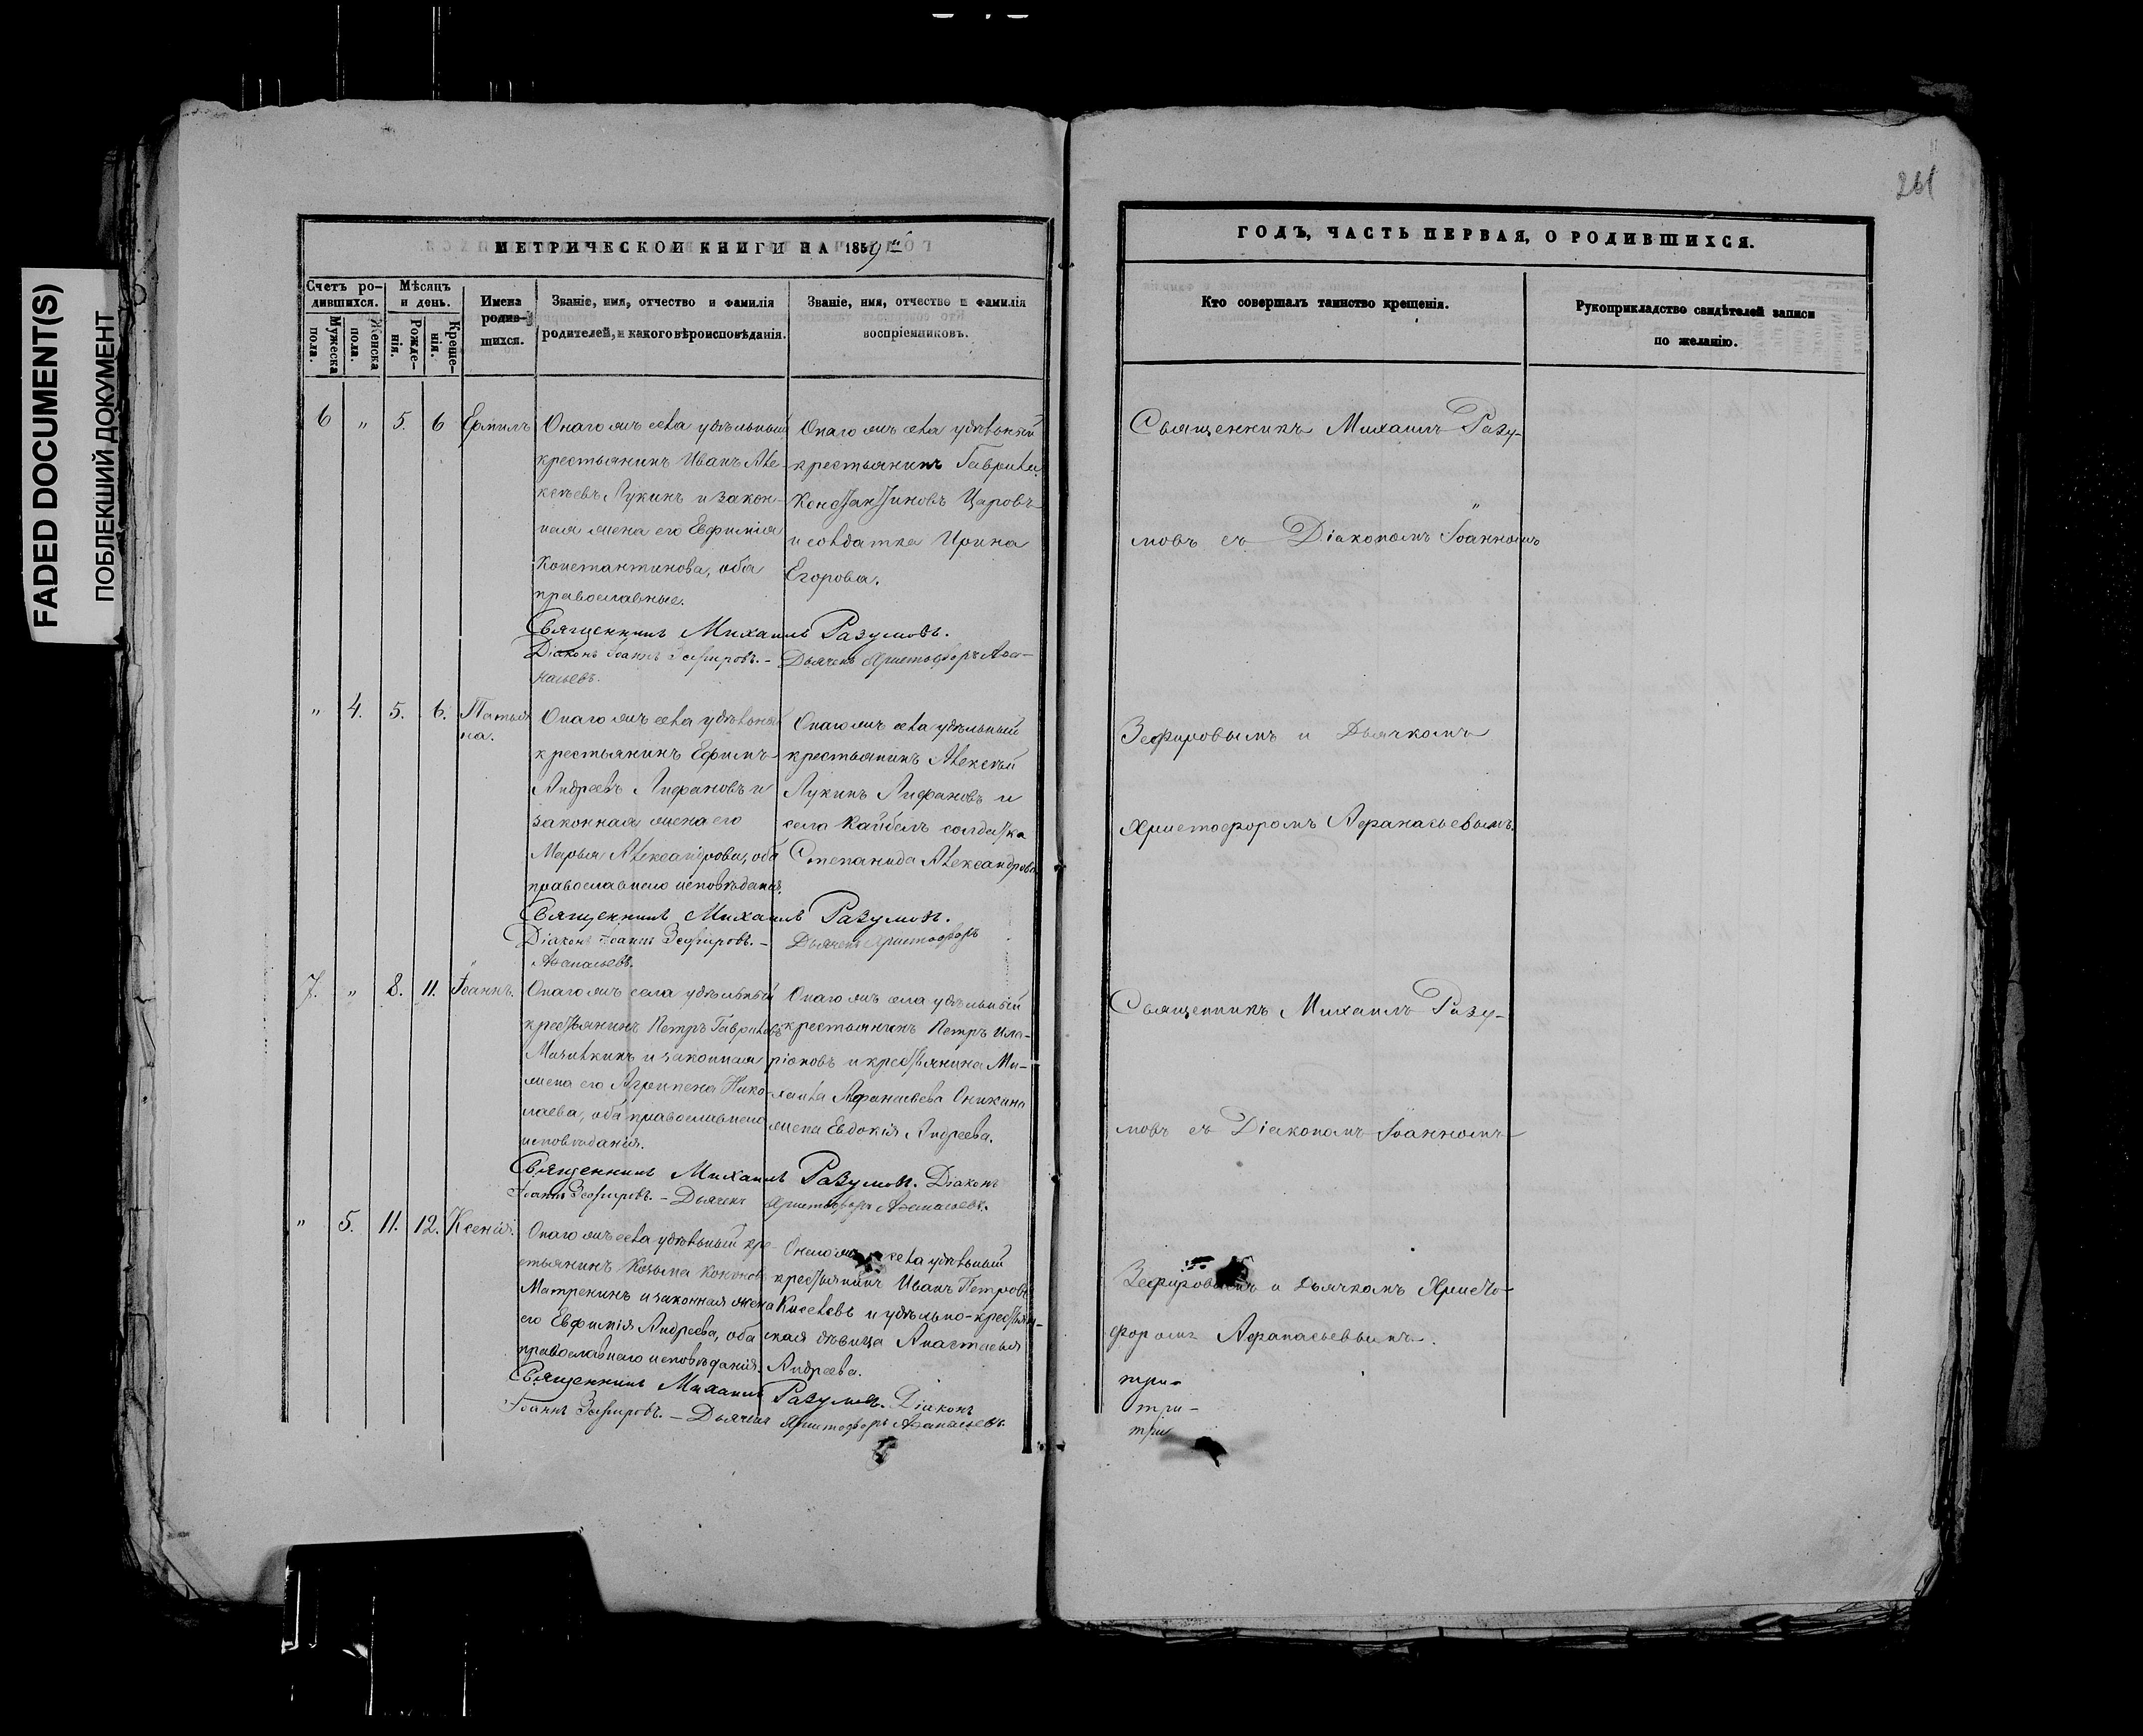 FADED DOCUMENT(S)
ПОБЛЕКШИЙ ДОКУМЕНТ
261
МЕТРИЧЕСКОЙ КНИГИ НА 1859й
Счетъ ро-
дившихся.
Мужеска
пола.
Женска
пола.
Мѣсяцъ
и день.
Рожде-
нія.
Креще-
нія.
Имена
родив-
шихся.
Званіе, имя, отчество и фамилія
родителей, и какого вѣроисповѣданія.
Званіе, имя, отчество и фамилія
воспріемниковъ.
6 „ 5. 6 Ермилъ
Онаго жъ села удѣльный
крестьянинъ Иванъ Але-
ксѣевъ Лукинъ и закон-
ная жена его Евфимія
Константинова, оба
православные.
Онаго жъ села удѣльный
крестьянинъ Гаврила
Константиновъ Царовъ
и солдатка Ирина
Егорова.
Священникъ Михаилъ Разумовъ.
Діаконъ Іоаннъ Зефировъ. – Дьячекъ Христофоръ Аѳа-
насьевъ.
„ 4. 5. 6. Татья
на.
Онаго жъ села удѣльный
крестьянинъ Ефимъ
Андреевъ Лифановъ и
законная жена его
Марья Александрова, оба
православнаго исповѣданія.
Онаго жъ села удѣльный
крестьянинъ Алексѣй
Лукинъ Лифановъ и
села Кайбелъ солдатка
Степанида Александрова
Священникъ Михаилъ Разумовъ.
Діаконъ Іоаннъ Зефировъ. – Дьячекъ Христофоръ
Аѳанасьевъ.
7. „ 8. 11. Іоаннъ.
Онаго жъ села удѣльный
крестьянинъ Петръ Гавриловъ
и законная
жена его Агрипена Нико-
лаева, оба православнаго
исповѣданія.
Онаго жъ села удѣльный
крестьянинъ Петръ Ила-
ріоновъ и крестьянина Ми-
хаила Афанасьева Оникина
жена Евдокія Андреева.
Священникъ Михаилъ Разумовъ. Діаконъ
Іоаннъ Зефировъ. – Дьячекъ Христофоръ Аѳанасьевъ.
„ 5. 11. 12. Ксенія.
Онаго жъ села удѣльный кре-
стьянинъ Козьма Кононовъ
Матренинъ и законная жена
его Евфимія Андреева, оба
православнаго исповѣданія.
Онаго жъ села удѣльный
крестьянинъ Иванъ Петровъ
Киселевъ и удѣльно-крестьян-
ская дѣвица Анастасья
Андреева.
Священникъ Михаилъ Разумовъ. Діаконъ
Іоаннъ Зефировъ. – Дьячекъ Христофоръ Аѳанасьевъ.
ГОДЪ, ЧАСТЬ ПЕРВАЯ, О РОДИВШИХСЯ.
Кто совершалъ таинство крещенія.
Рукоприкладство свидѣтелей записи
по желанію.
Священникъ Михаилъ Разу-
мовъ съ Діакономъ Іоанномъ
Зефировымъ и Дьячкомъ
Христофоромъ Афанасьевымъ.
Священникъ Михаилъ Разу-
мовъ съ Діакономъ Іоанномъ
Зефировымъ и Дьячкомъ Христо-
форомъ Афанасьевымъ.
три-
три-
три